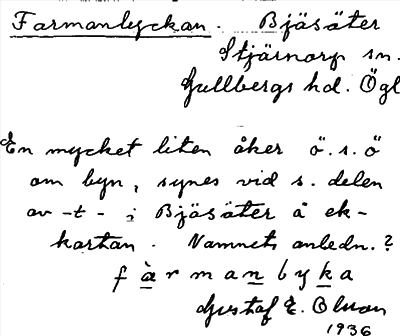 Farmanlyckan. Bjäsäter
Stjärnorp sn.
Gullbergs hd. Ögl
En mycket liten åker ö.s.ö
om byn, synes vid s. delen
av -t- i Bjäsäter å ek-
kartan. Namnets anledn.?
färmanbyka
Gustaf E. Olsson
1936